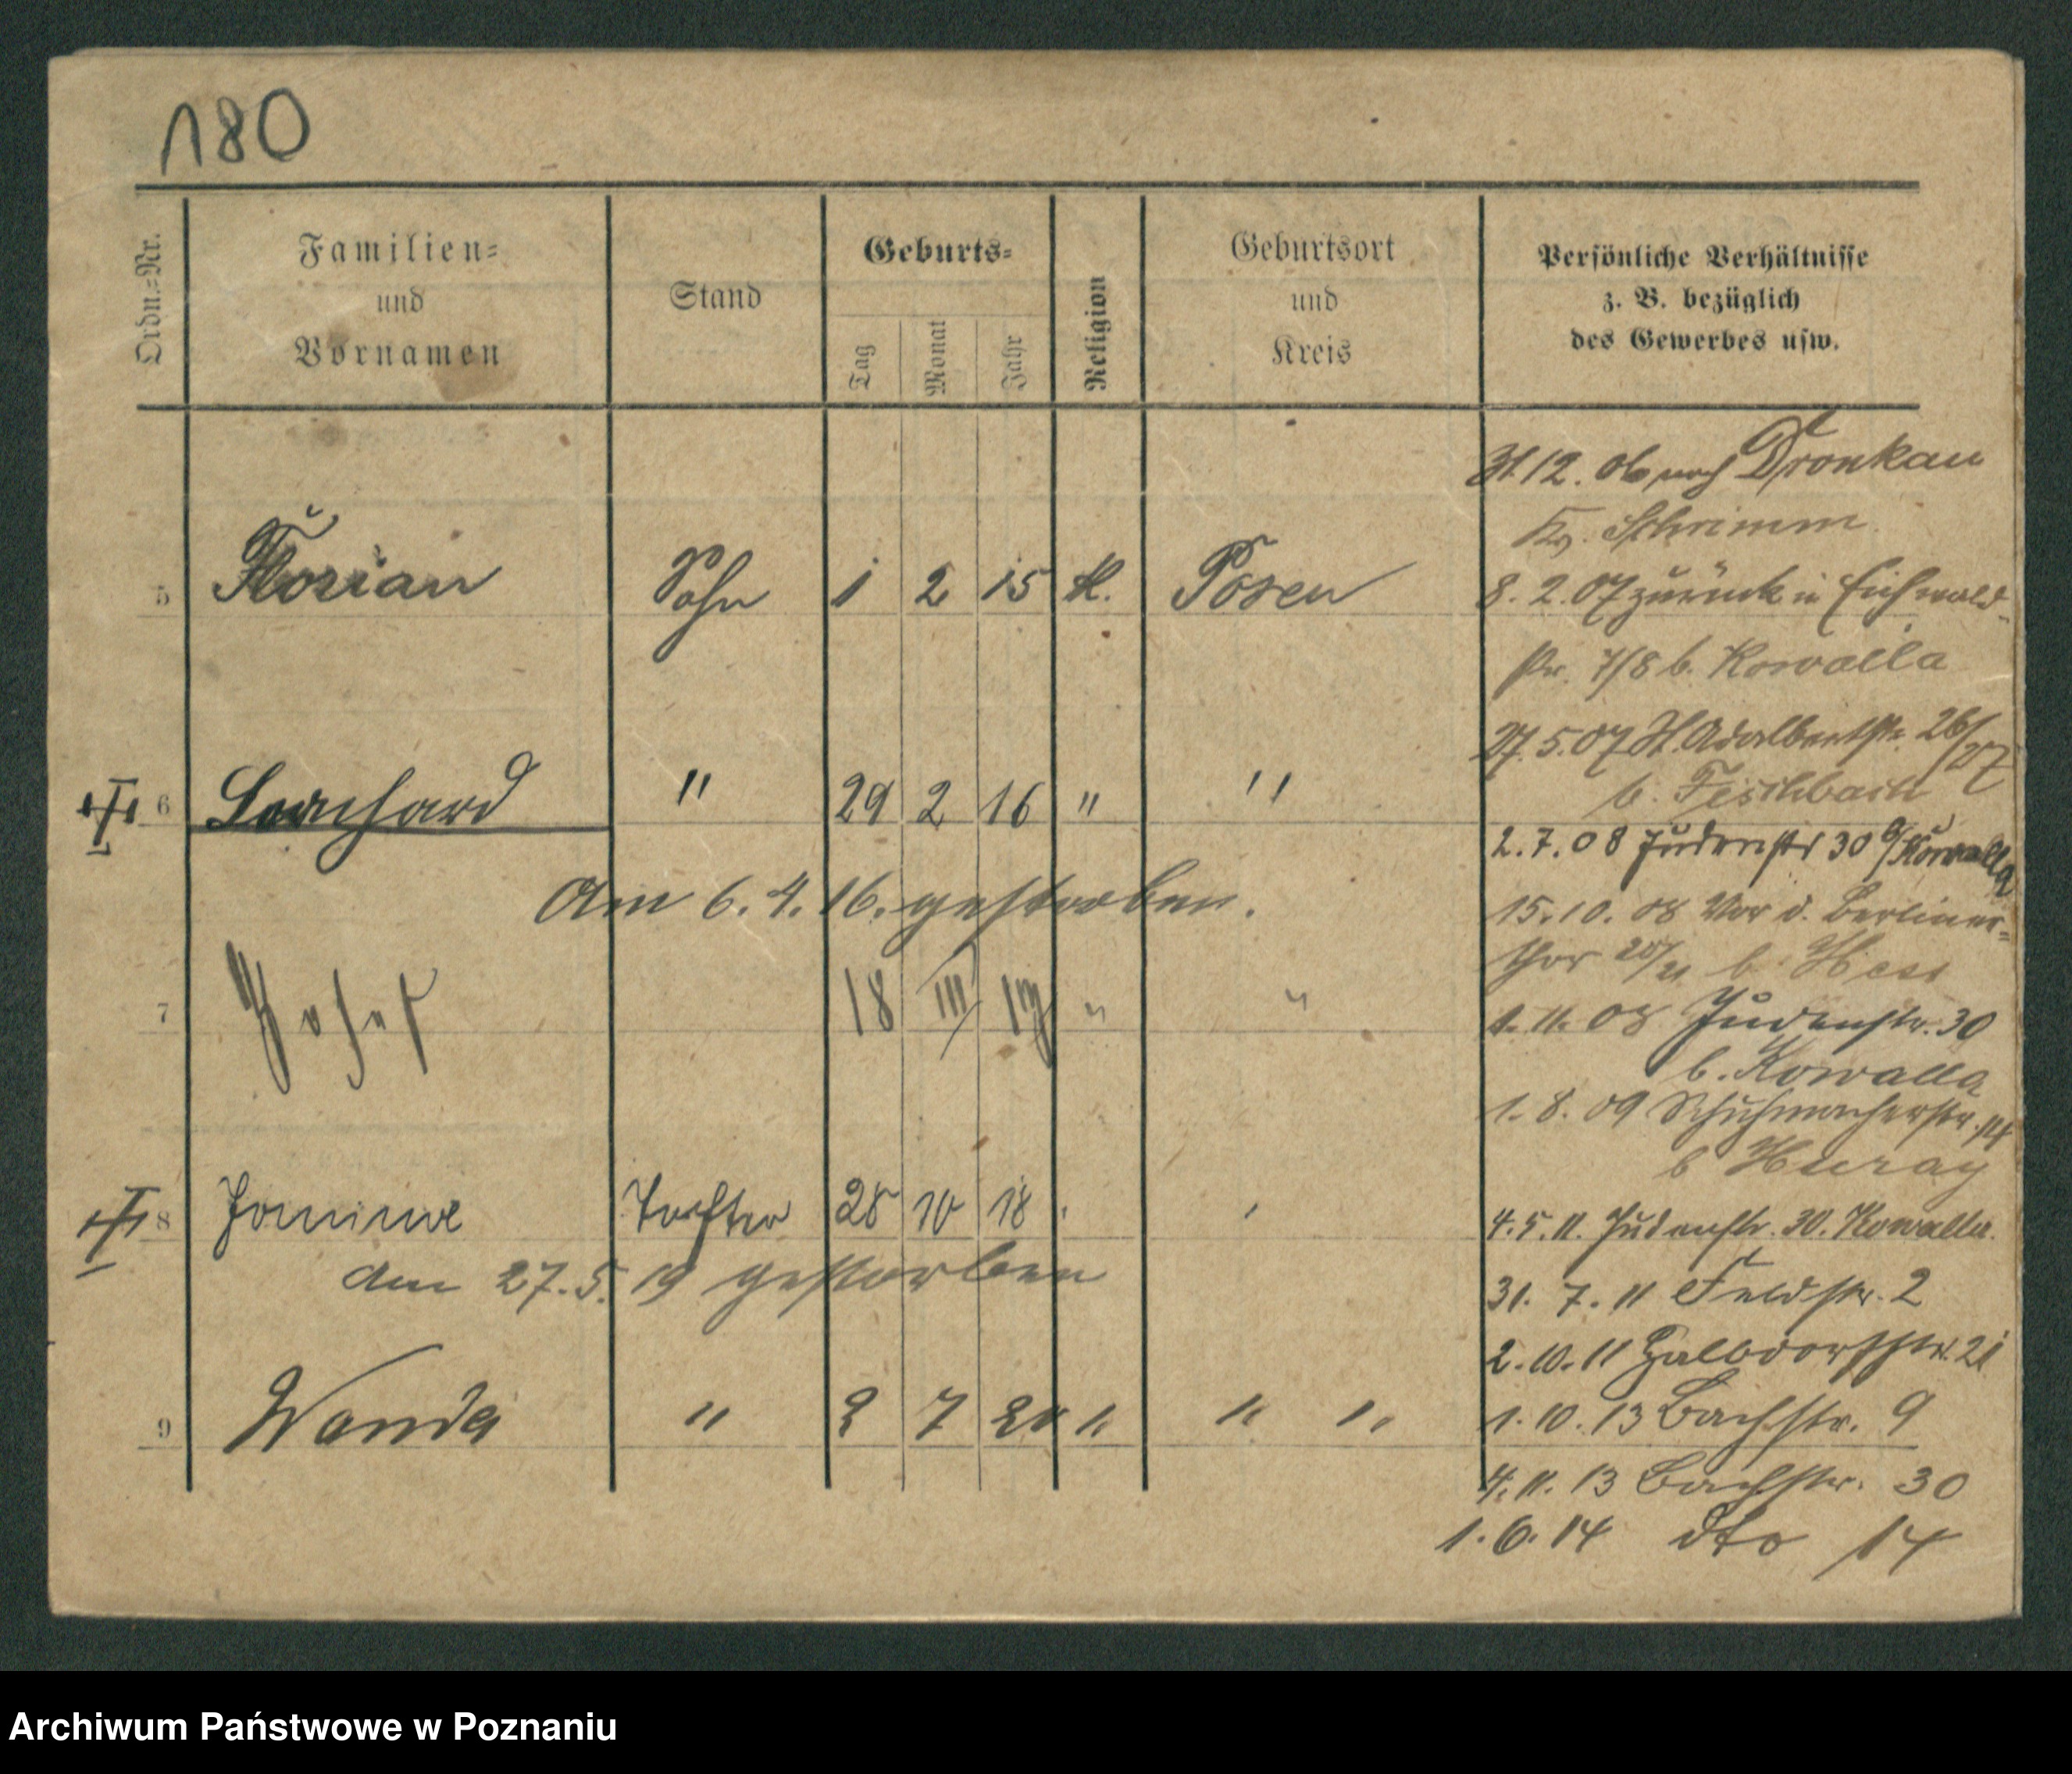 180
Ordn.=Nr.
Familien=
und
Vornamen
Stand
Geburts=
Tag
Monat
Jahr
Religion
Geburtsort
und
Kreis
Persönliche Verhältnisse
z. B. bezüglich
des Gewerbes usw.
5 Florian Sohn 1 2 15 k. Posen
6 " 29 2 16 " "
Am 6. 4. 16. gestorben.
7 Josef 18 III 17 " "
8 Tochter 28 10 18
am 27. 5. 19 gestorben
9 Wanda " 2 7 20 " " "
31.12.06 nach Dronkau
Kr. Schrimm.
8. 2. 07 zurück in Eichwald-
str. 7/8 b. Kowalla
27. 5. 07 St. Adalbertstr. 26/27
b. Fischbach
2. 7. 08 Judenstr 30 b/Kowalla
15. 10. 08 Vor d. Berliner=
thor 20/21 b. Hess
1. 11. 08 Judenstr. 30
b. Kowalla
1. 8. 09 Schuhmacherstr. 14
b
4. 5. 11. Judenstr. 30. Kowalla.
31. 7. 11 Feldstr. 2
2. 10. 11 21
1. 10. 13 Bachstr. 9
4. 11. 13 Bachstr. 30
1. 6. 14 dto 14
Archiwum Państwowe w Poznaniu